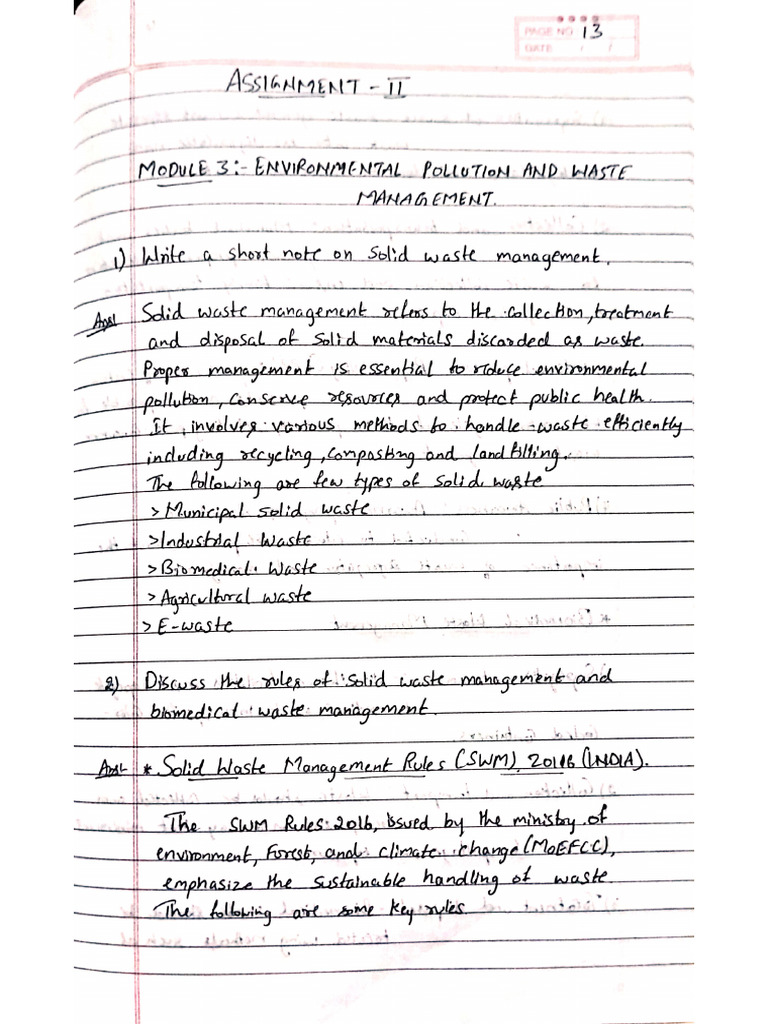 PAGE NO 13
DATE / /
ASSIGNMENT - II
MODULE 3:- ENVIRONMENTAL POLLUTION AND WASTE
MANAGEMENT.
1) Write a short note on solid waste management.
Ans1 Solid waste management refers to the collection, treatment
and disposal of solid materials discarded as waste.
Proper management is essential to reduce environmental
pollution, conserve resources and protect public health.
It involves various methods to handle waste efficiently
including recycling, composting and landfilling.
The following are few types of solid waste
> Municipal solid waste
> Industrial waste
> Biomedical waste
> Agricultural waste
> E-waste
2) Discuss the rules of solid waste management and
biomedical waste management.
Ans2 * Solid Waste Management Rules (SWM), 2016 (INDIA).
The SWM Rules 2016, issued by the ministry of
environment, Forest, and climate change (MoEFCC),
emphasize the sustainable handling of waste
The following are some key rules.